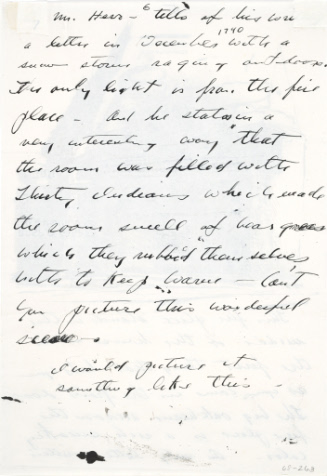 Mr. Heer - 6 tells of his wri
a letter in December 1740 with a
snow storm raging outdoors.
The only light is from the fire
place - And he states in a
very interesting way "that
the room was filled with
Thirty Indians which made
the room smell of bear grease
which they rubbed themselves
with to keep warm" - Can't
you picture this wonderful
scene.
I would picture it
something like this -
61-263